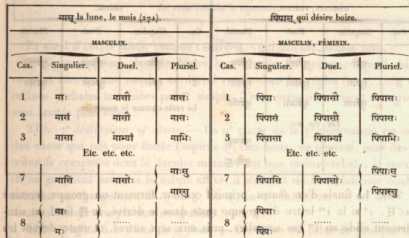 मास् la lune, le mois (271). पिपास् qui désire boire.
MASCULIN. MASCULIN, FÉMININ.
Cas. Singulier. Duel. Pluriel. Cas. Singulier. Duel. Pluriel.
1 माः मासौ मासः 1 पिपाः पिपासौ पिपासः
2 मासं मासौ मासः 2 पिपासं पिपासौ पिपासः
3 मासा माभ्यां माभिः 3 पिपासा पिपाभ्यां पिपाभिः
Etc. etc. etc. Etc. etc. etc.
7 मासि मासोः माःसु 7 पिपासि पिपासोः पिपाःसु
मास्सु पिपास्सु
8 माः ...... ...... 8 पिपाः ...... ......
मः पिपः